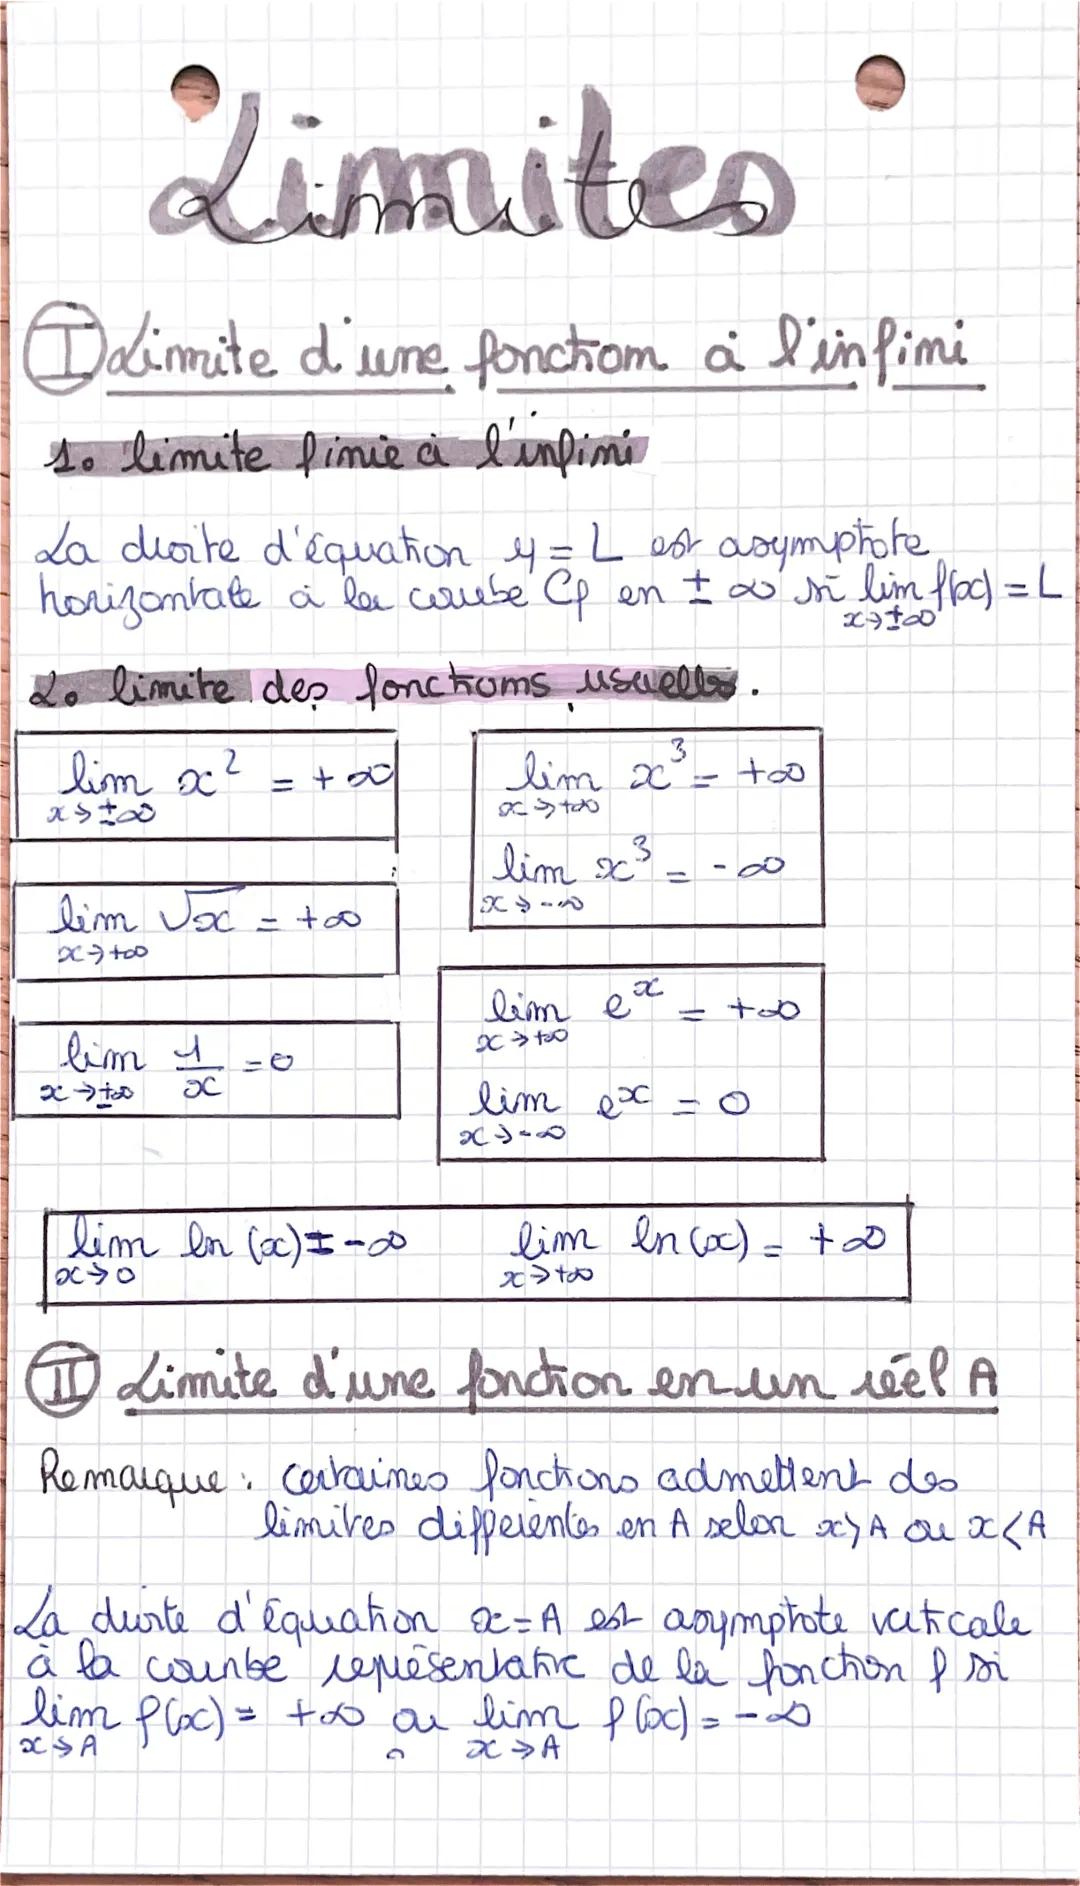 Limites
I Limite d'une fonction à l'infini
1. limite finie à l'infini
La droite d'équation y = L est asymptote
horizontale à la courbe Cf en ± ∞ si lim f(x) = L
x→±∞
2. limite des fonctions usuelles.
lim x² = +∞
x→±∞
lim x³ = +∞
x→+∞
lim x³ = -∞
x→-∞
lim √x = +∞
x→+∞
lim 1/x = 0
x→±∞
lim eˣ = +∞
x→+∞
lim eˣ = 0
x→-∞
lim ln(x) = -∞ lim ln(x) = +∞
x→0 x→+∞
II Limite d'une fonction en un réel A
Remarque : certaines fonctions admettent des
limites différentes en A selon x>A ou x<A
La droite d'équation x=A est asymptote verticale
à la courbe représentative de la fonction f si
lim f(x) = +∞ ou lim f(x) = -∞
x→A x→A